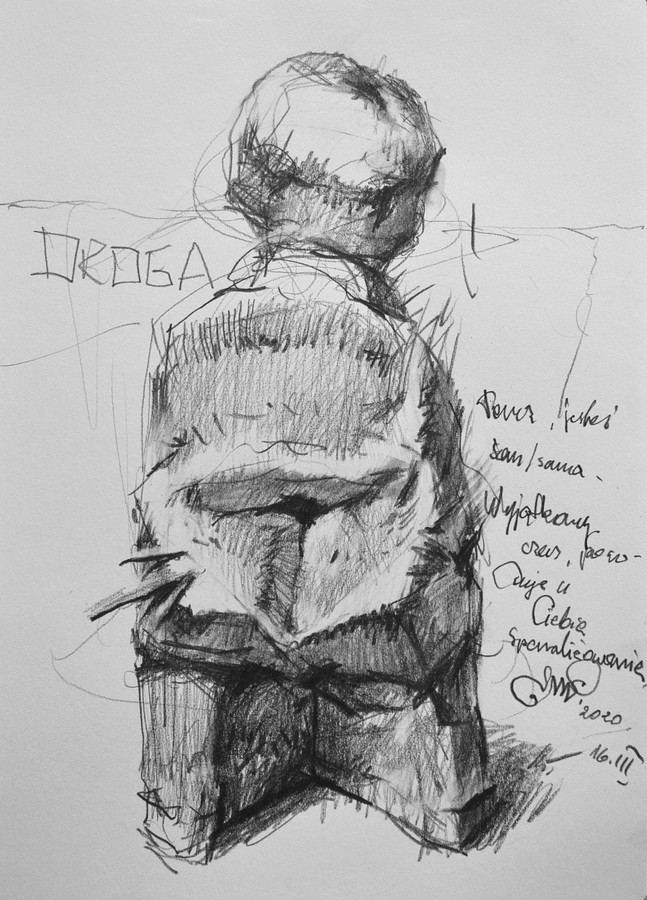 DROGA
, jesteś
sam/sama.
Wyjątkowy
czas, powo-
duje u
Ciebie
sparaliżowanie,
'2020
16.III